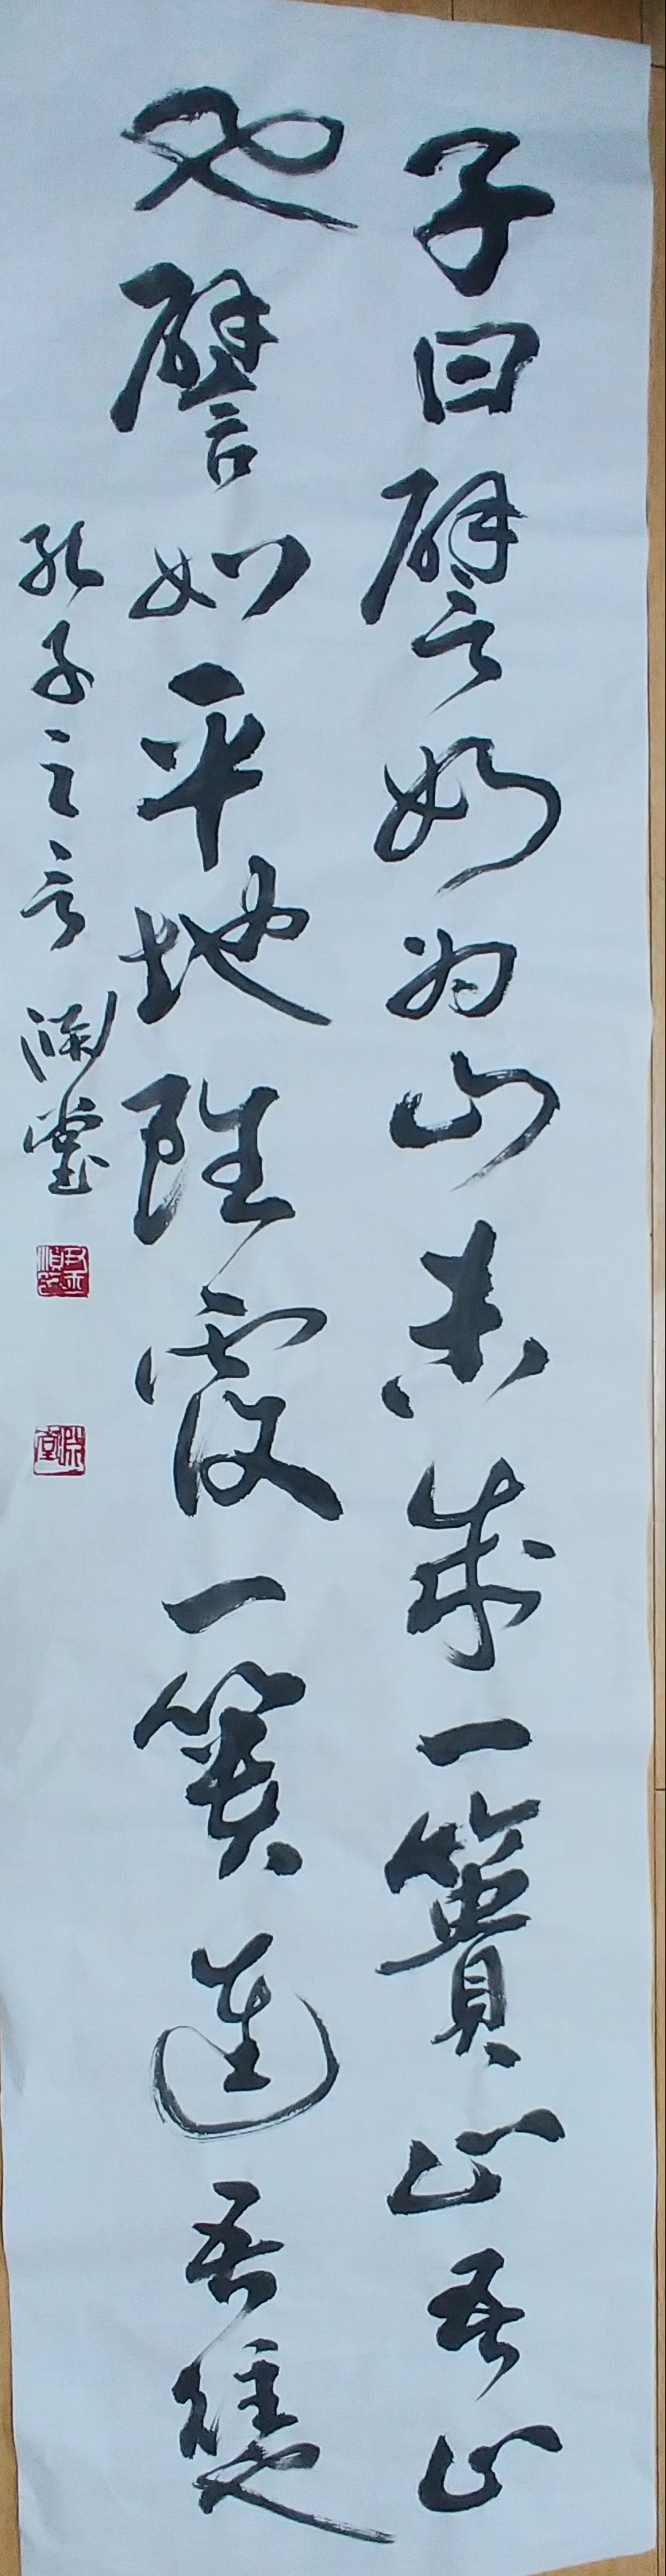 子曰譬如為山未成一簣止吾止
也譬如平地雖覆一簣進吾往也
孔子之言